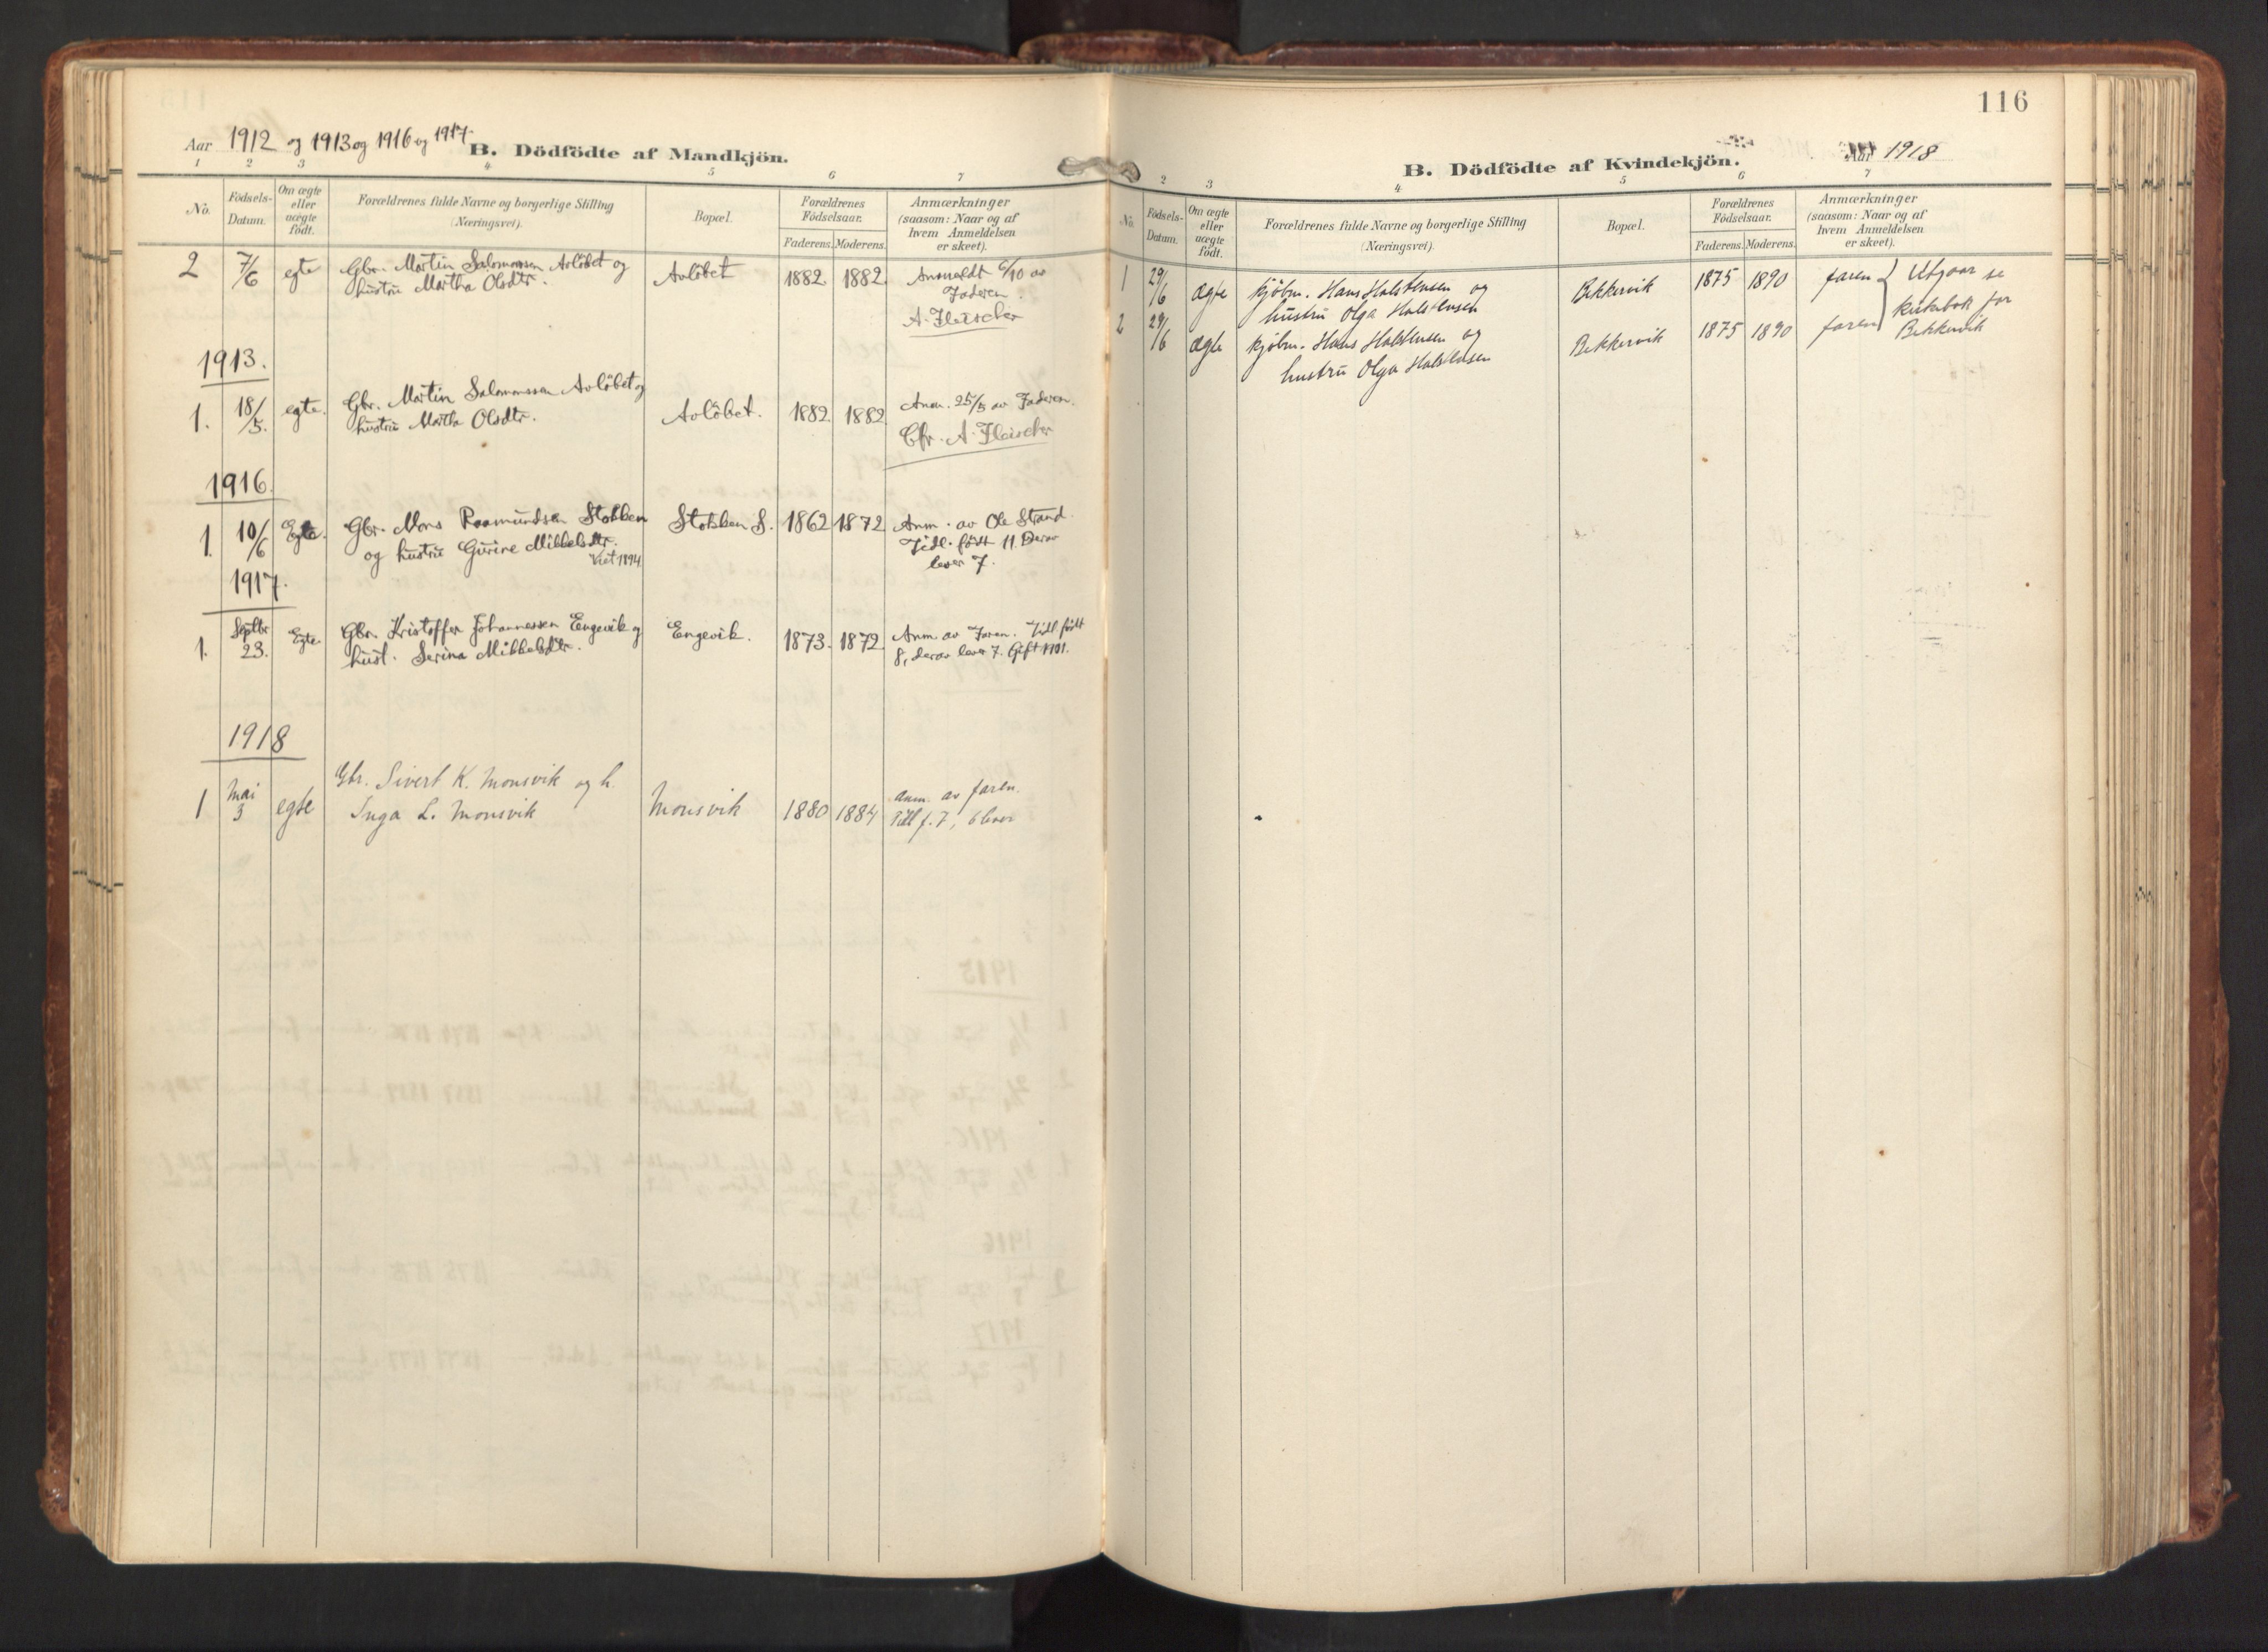 Aar 1912 og 1913 og 1916 og 1917.
B. Dödfödte af Mandkjön.
1 2 3 4 5 6 7
No.
Födsels-
Datum.
Om ægte
eller
uægte
födt.
Forældrenes fulde Navne og borgerlige Stilling
(Næringsvei).
Bopæl.
Forældrenes
Födselsaar.
Faderens. Moderens.
Anmærkninger
(saasom: Naar og af
hvem Anmeldelsen
er skeet).
2 7/6 egte Gbr. Martin Salomonsen Avlöbet og
hustru Martha Olsdtr.
Avlöbet 1882 1882. Anmeldt 6/10 av
Faderen.
A. Fleischer
1913.
1. 18/5. egte. Gbr. Martin Salomonssen Avlöbet og
hustru Martha Olsdtr.
Avlöbet. 1882 1882 Anm. 25/5 av Faderen.
Cfr. A. Fleischer
1916.
1. 10/6 Egte. Gbr. Mons Rasmundsen Stokken
og hustru Gurine Mikkelsdtr.
Viet 1894
Stokken S. 1862 1872 Anm. av Ole Strand.
Tidl. født 11. Derav
lever 7.
1917.
1. Septbr
23. Egte. Gbr. Kristoffer Johannessen Engevik og
hust. Serina Mikkelsdtr.
Engevik. 1873. 1872 Anm. av Faren. Tidl. født
8, derav lever 7. Gift 1901.
1918
1 Mai
3 egte Gbr. Sivert K. Monsvik og h.
Inga L. Monsvik
Monsvik 1880 1884 anm. av faren.
Tidl f. 7, 6 lever
116
B. Dödfödte af Kvindekjön.
Aar 1918
2 3 4 5 6 7
No.
Födsels-
Datum.
Om ægte
eller
uægte
födt.
Forældrenes fulde Navne og borgerlige Stilling
(Næringsvei).
Bopæl.
Forældrenes
Födselsaar.
Faderens. Moderens.
Anmærkninger
(saasom: Naar og af
hvem Anmeldelsen
er skeet).
1 29/6 ægte kjöbm. Hans Halstensen og
hustru Olga Halstensen
Bekkervik 1875 1890 faren } Utgaar se
kirkebok for
Bekkervik
2 29/6 ægte kjöbm. Hans Halstensen og
hustru Olga Halstensen
Bekkervik 1875 1890 faren